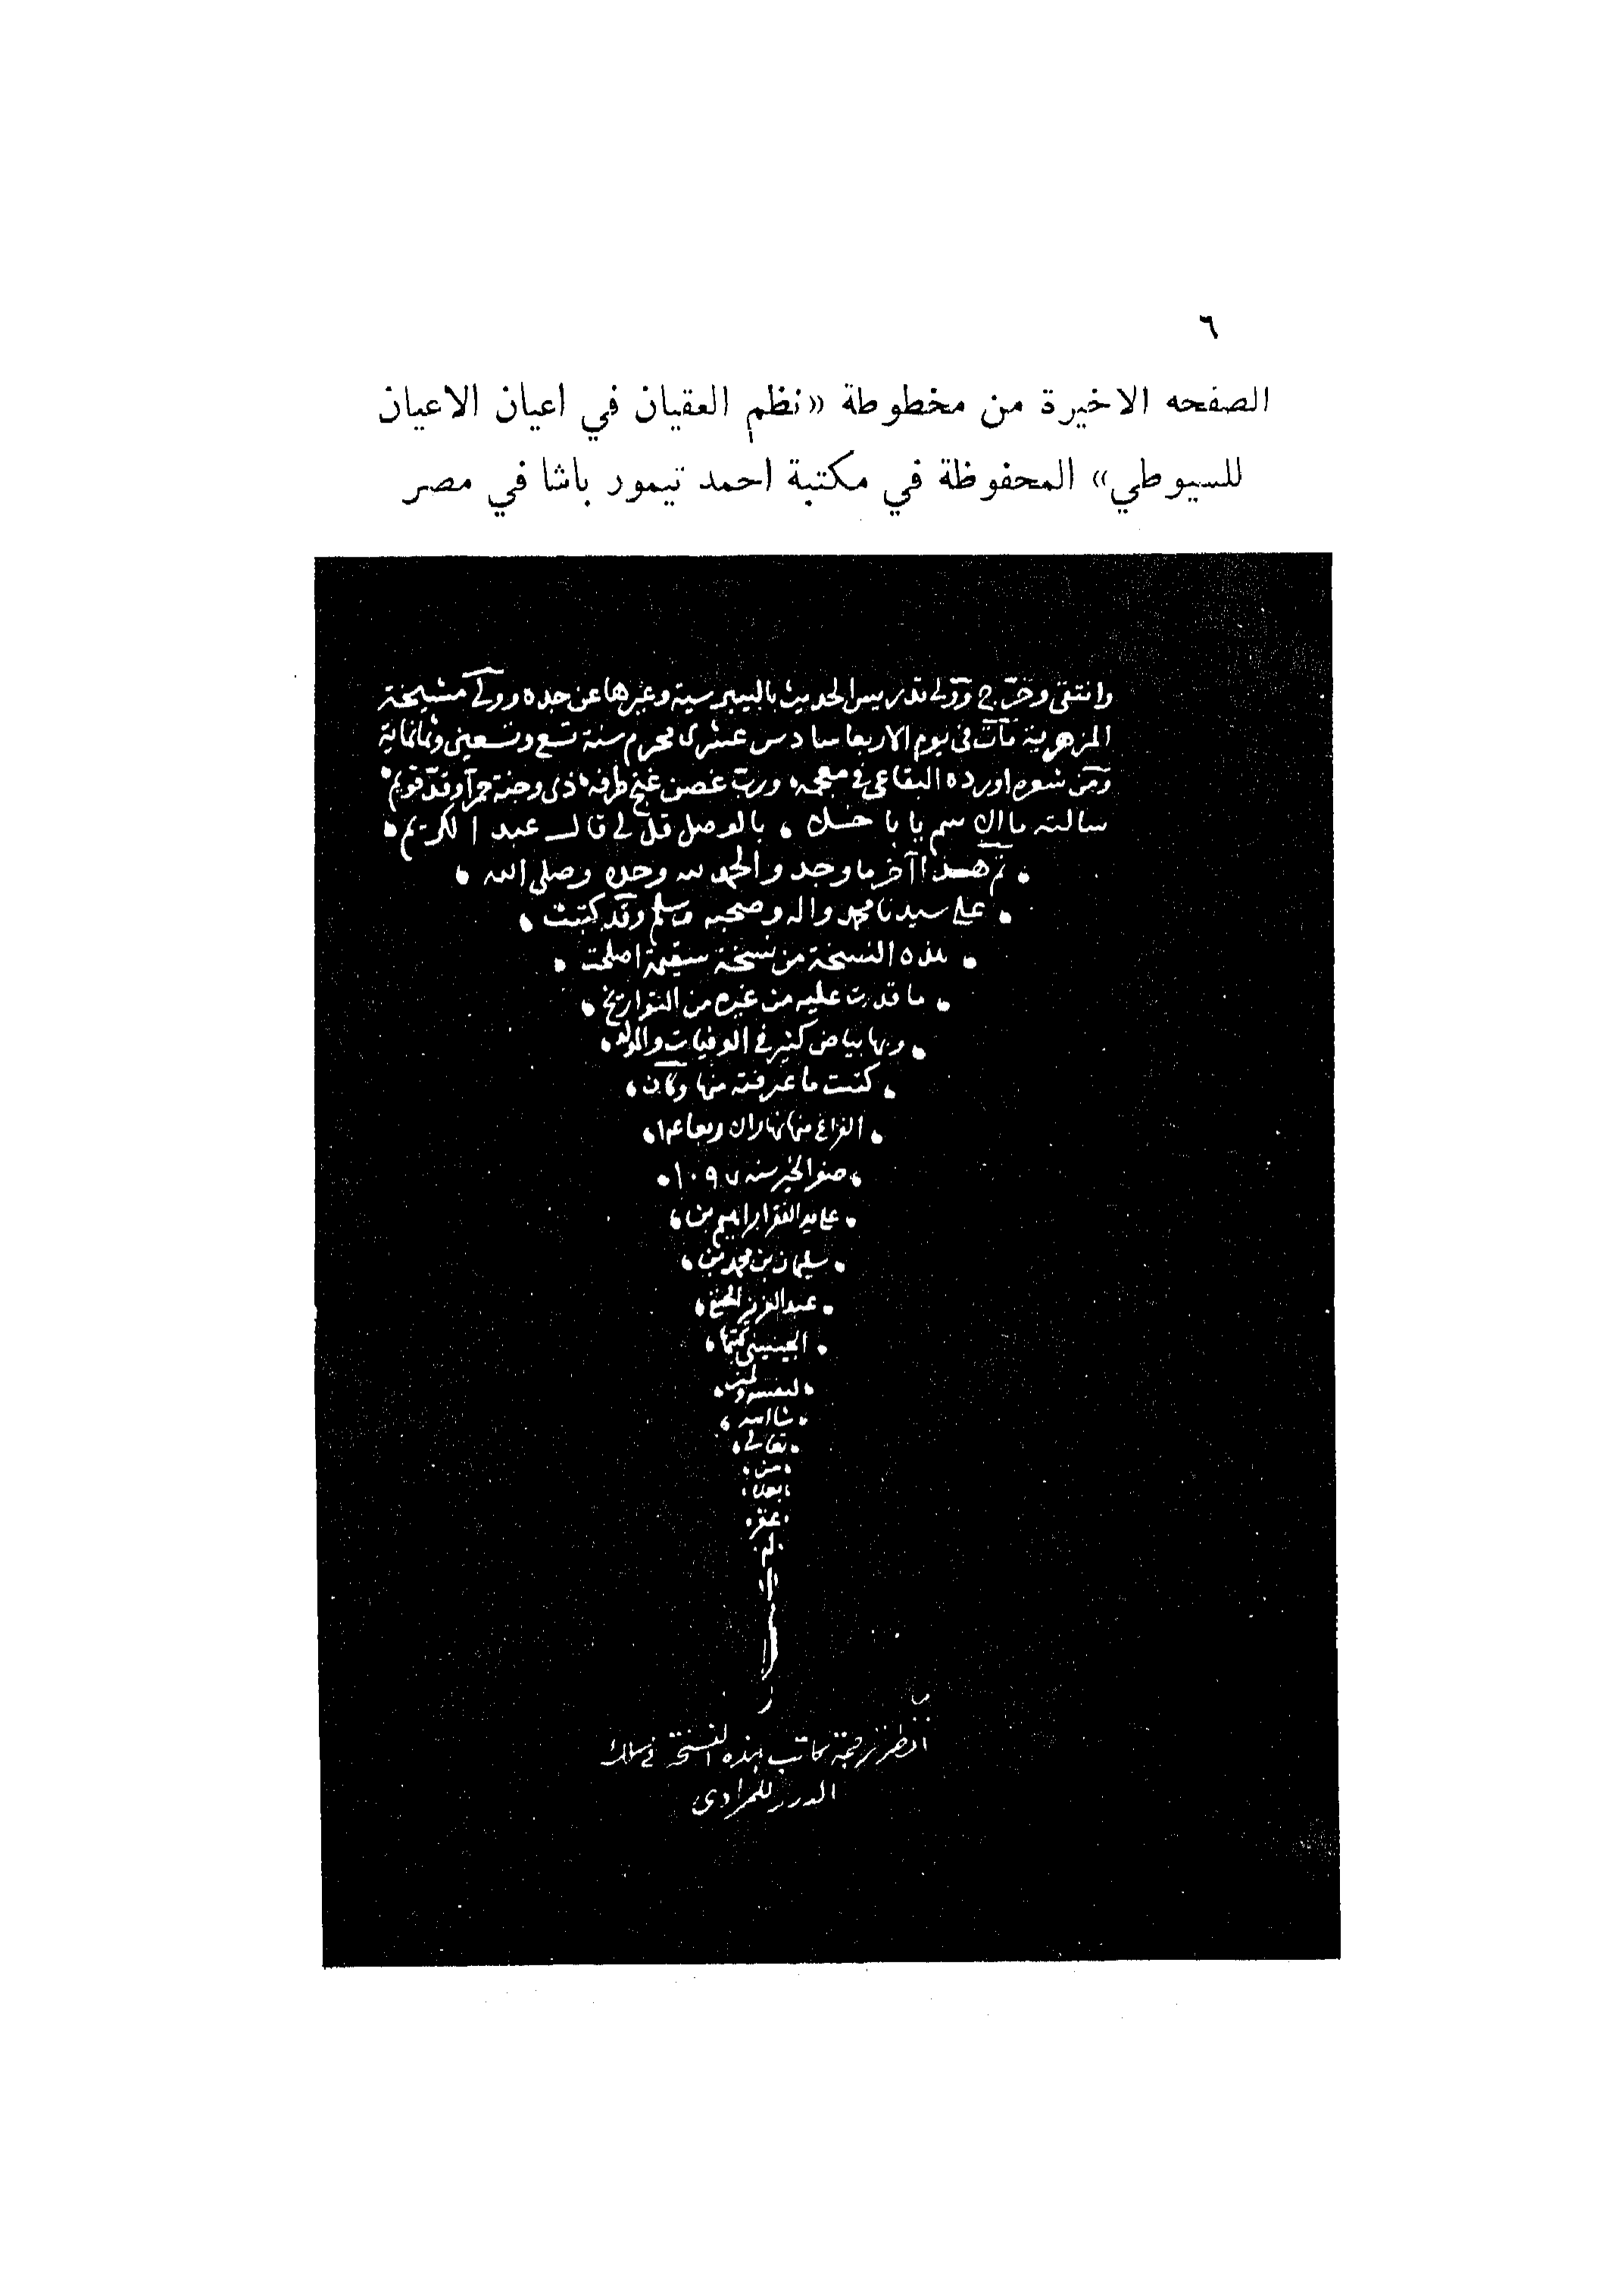 ٦
الصفحه الاخيرة من مخطوطة «نظم العقيان في اعيان الاعيان
للسيوطي» المحفوظة في مكتبة احمد تيمور باشا في مصر
وانتقى وخرّج وولى تدريس الحديث بالبيبرسية وغيرها عن جده وولى مشيخة
المزهرية مات فى يوم الاربعا سادس عشرى محرم سنة تسع وتسعين وثمانماية
ومن شعره اورده البقاعى فى معجمه ورب غصن غنج طرفه ذى وجنة حمرآ وقدّ قويم
سالته ما الاسم يا با بالوصل قل لى قال عبد الكريم
تم هذا آخر ما وجد والحمد لله وحده وصلى الله
على سيدنا محمد واله وصحبه وسلم وقد كتبت
هذه النسخة من نسخة سقيمة اصلحت
ما قدرت عليه من غيره من التواريخ
وبها بياض كثير فى الوفيات والمولد
كتبت ما عرفته منها وكان
الفراغ منها نهار
صفر الخير سنه ١٠٩٧
على يد الفقير ابراهيم بن
سليمان بن محمد بن
عبد العزيز الحنفى
الجينينى كتبها
لنفسه ولمن
شا الله
تعالى
من
بعده
غفر
لهم
انظر ترجمة كاتب هذه النسخة فى سلك
الدرر للمرادى